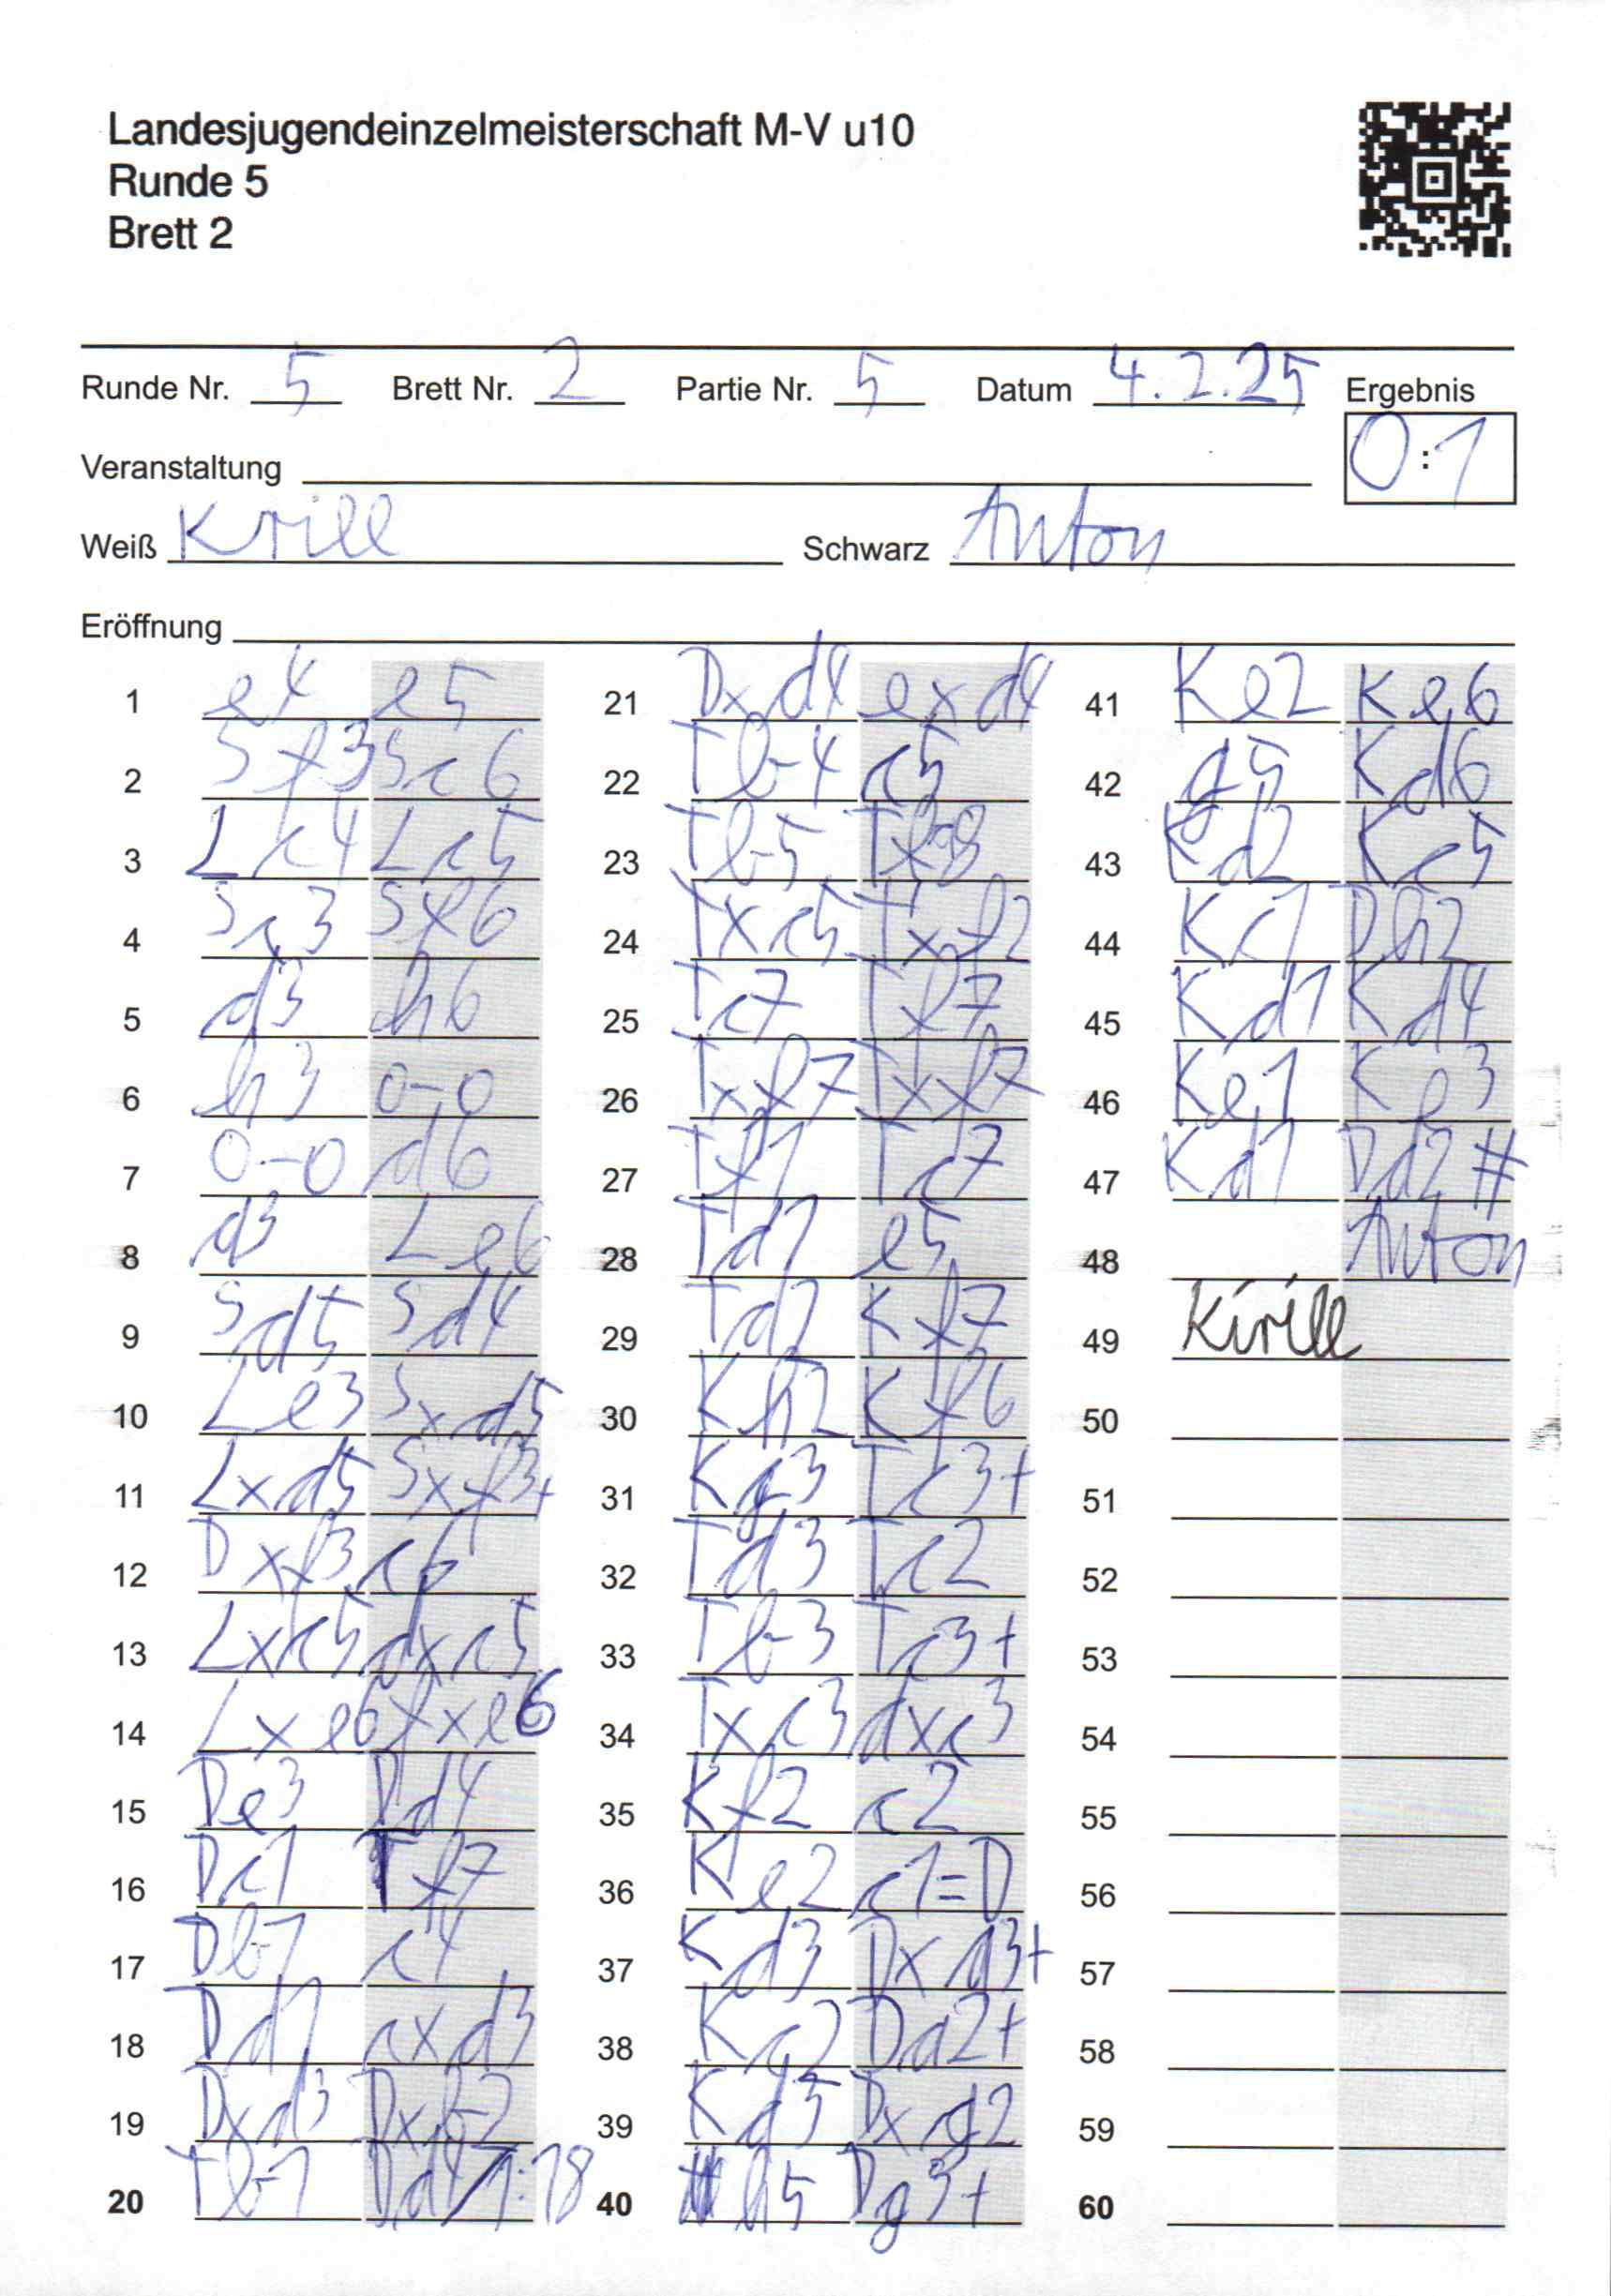 Landesjugendeinzelmeisterschaft M-V u10
Runde 5
Brett 2
Runde Nr. 5 Brett Nr. 2 Partie Nr. 5 Datum 4.2.25 Ergebnis
Veranstaltung 0:1
Weiß Krill Schwarz Anton
Eröffnung
1 e4 e5 21 Dxd4 exd4 41 Ke2 Ke6
2 Sf3 Sc6 22 Tb4 c5 42 g5 Kd6
3 Lc4 Lc5 23 Tb5 43 Kd2 Kc5
4 Sc3 Sf6 24 Txc5 Txf2 44 Kc1 Dh2
5 d3 h6 25 Tc7 Tf7 45 Kd1 Kd4
6 h3 0-0 26 Txf7 Txf7 46 Ke1 Ke3
7 0-0 d6 27 Tf1 Tc7 47 Kd1 Dd2#
8 d3 Le6 28 Td1 e5 48 Anton
9 Sd5 Sd4 29 Td2 Kf7 49 Kirill
10 Le3 Sxd5 30 Kh2 Kf6 50
11 Lxd5 Sxf3+ 31 Kg3 Tc3+ 51
12 Dxf3 c6 32 Td3 Tc2 52
13 Lxc5 dxc5 33 Tb3 Tc3+ 53
14 Lxe6 fxe6 34 Txc3 dxc3 54
15 De3 Dd4 35 Kf2 c2 55
16 Dc1 Tf7 36 Ke2 c1=D 56
17 Db1 c4 37 Kd3 Dxd3+ 57
18 Dd1 cxd3 38 Da2+ 58
19 Dxd3 Dxb2 39 Dxg2 59
20 Tb1 Dd4 1:18 40 h5 Dg3+ 60